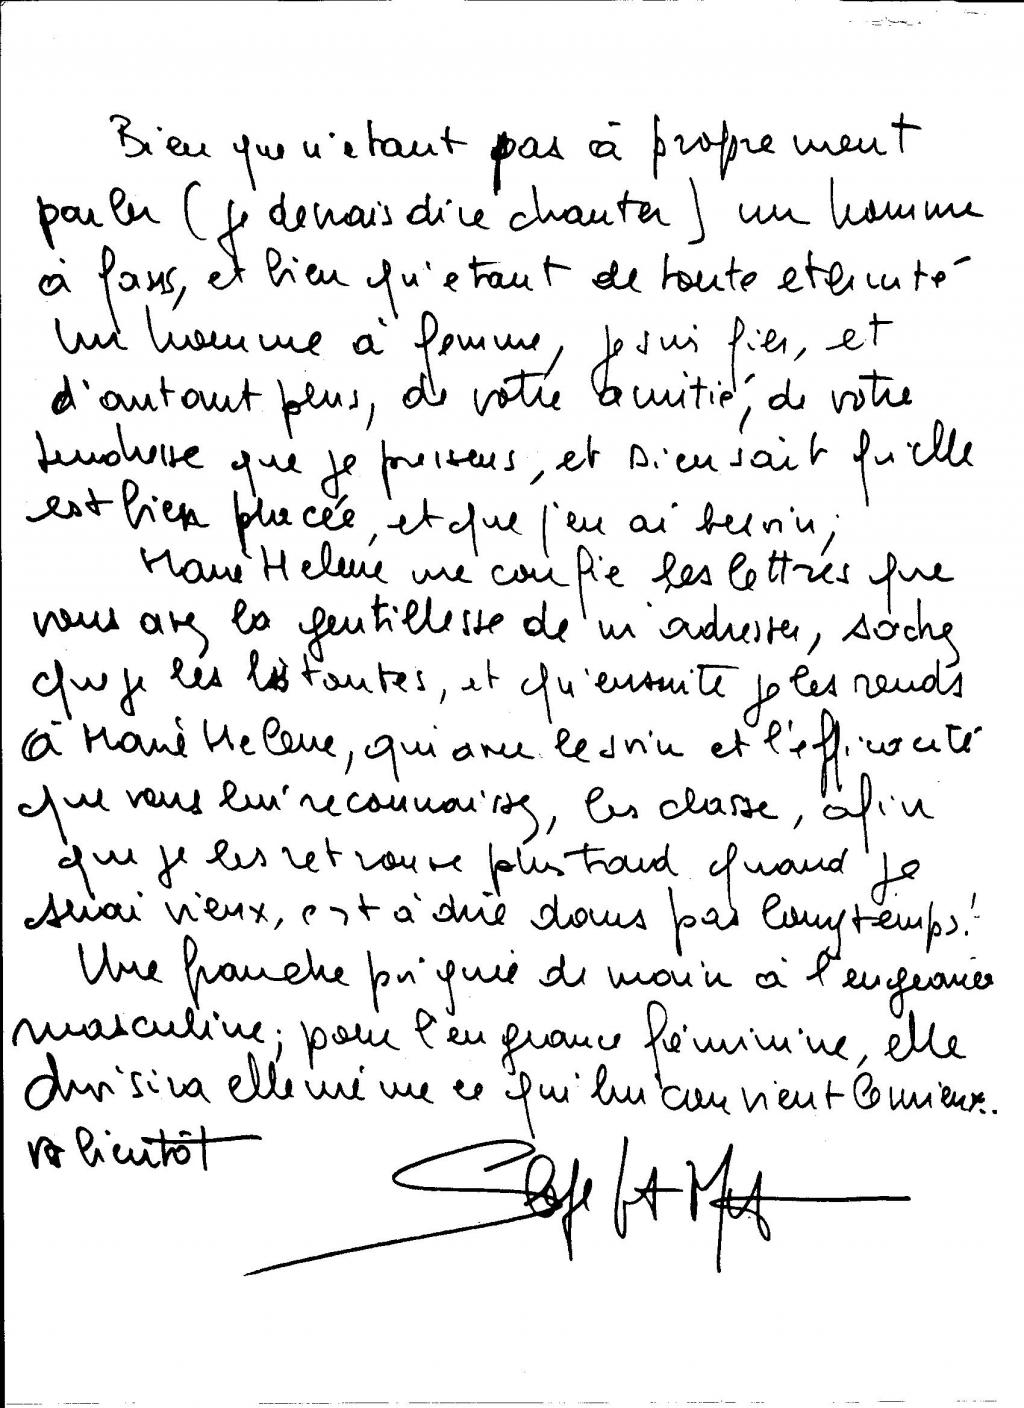 Bien que n'étant pas à proprement
parler (je devrais dire chanter) un homme
à fans, et bien qu'étant de toute éternité
un homme à femme, je suis fier, et
d'autant plus, de votre amitié, de votre
tendresse que je pressens, et Dieu sait qu'elle
est bien placée, et que j'en ai besoin;
Marie Helene me confie les lettres que
vous avez la gentillesse de m'adresser, sachez
que je les lis toutes, et qu'ensuite je les rends
à Marie Helene, qui avec le soin et l'efficacité
que vous lui reconnaissez, les classe, afin
que je les retrouve plus tard quand je
serai vieux, c'est à dire dans pas longtemps!
Une franche poignée de main à l'engeance
masculine; pour l'engeance féminine, elle
choisira elle même ce qui lui convient le mieux..
A bientôt
Serge LAMA